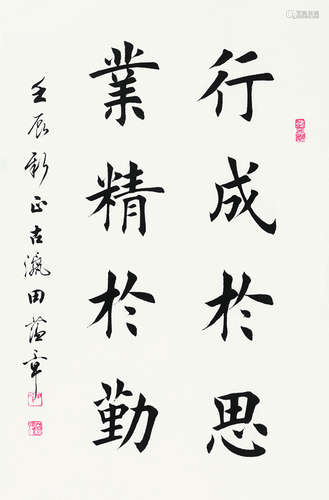 行成於思
業精於勤
壬辰新正古瀛田蘊章